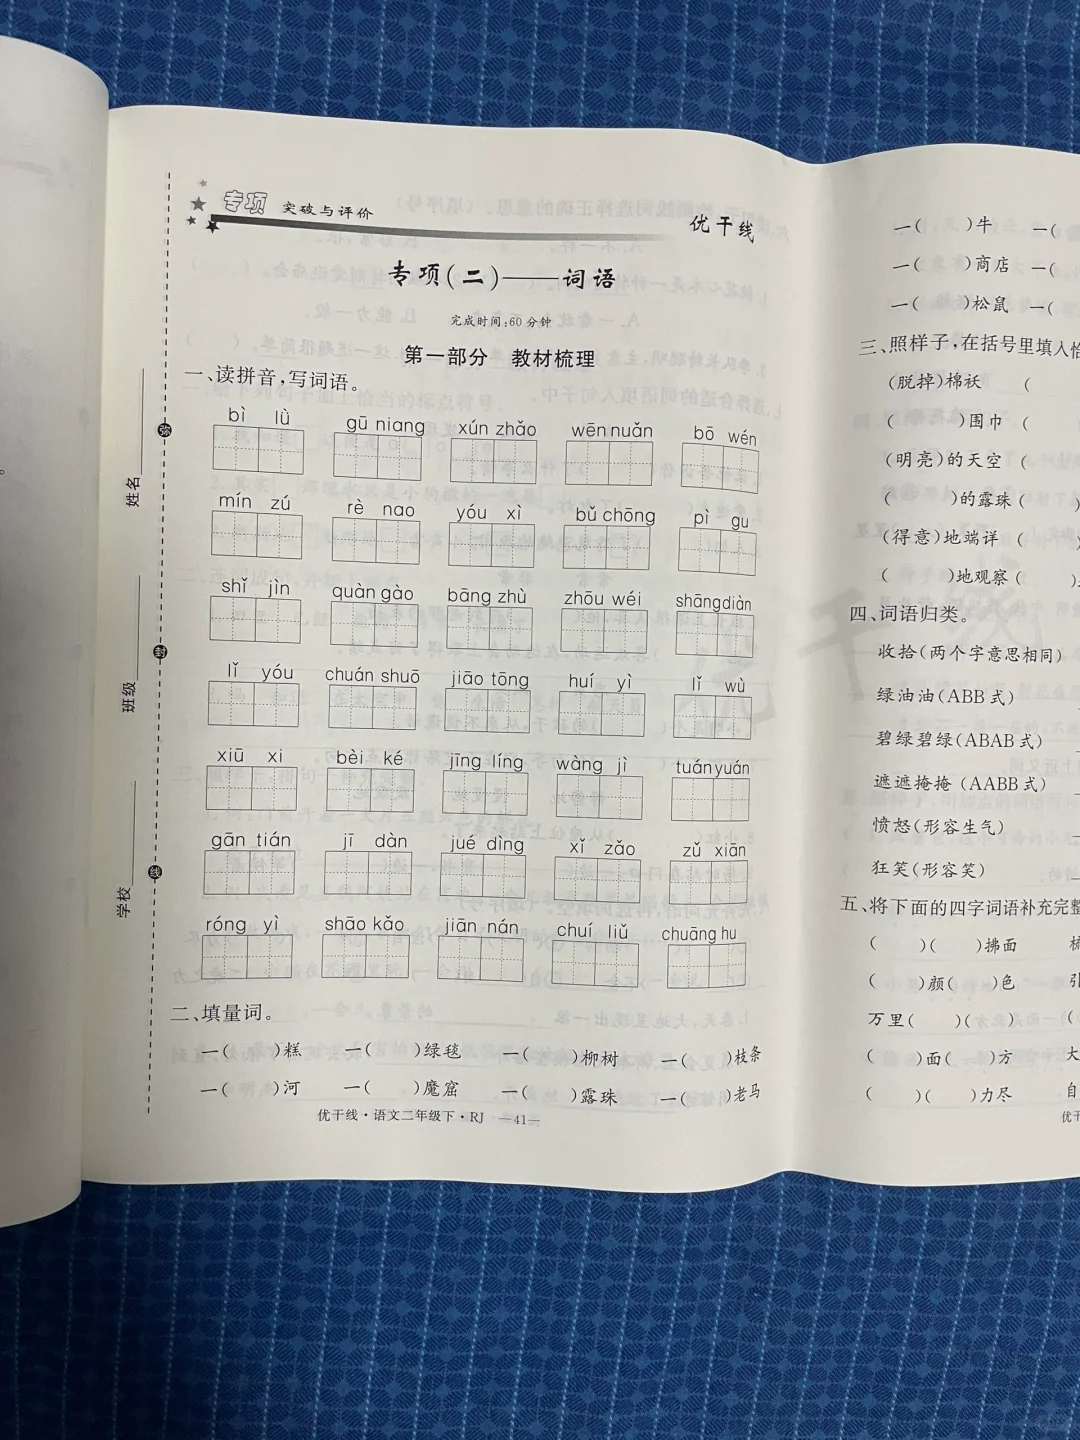 专项 突破与评价
优干线
专项(二)——词语
完成时间:60分钟
第一部分 教材梳理
一、读拼音,写词语。
bì lǜ gū niang xún zhǎo wēn nuǎn bō wén
mín zú rè nao yóu xì bǔ chōng pì gu
shǐ jìn quàn gào bāng zhù zhōu wéi shāng diàn
lǐ yóu chuán shuō jiāo tōng huí yì lǐ wù
xiū xi bèi ké jīng líng wàng jì tuán yuán
gān tián jī dàn jué dìng xǐ zǎo zǔ xiān
róng yì shāo kǎo jiān nán chuí liǔ chuāng hu
二、填量词。
一( )糕 一( )绿毯 一( )柳树 一( )枝条
一( )河 一( )魔窟 一( )露珠 一( )老马
优干线·语文二年级下·RJ —41—
姓名
班级
学校
线
一( )牛 一(
一( )商店 一(
一( )松鼠 一(
三、照样子,在括号里填入恰
(脱掉)棉袄 (
( )围巾 (
(明亮)的天空 (
( )的露珠 (
(得意)地端详 (
( )地观察 (
四、词语归类。
收拾(两个字意思相同)
绿油油(ABB式)
碧绿碧绿(ABAB式)
遮遮掩掩(AABB式)
愤怒(形容生气)
狂笑(形容笑)
五、将下面的四字词语补充完整
( )( )拂面
( )颜( )色
万里( )( )
( )面( )方
( )( )力尽